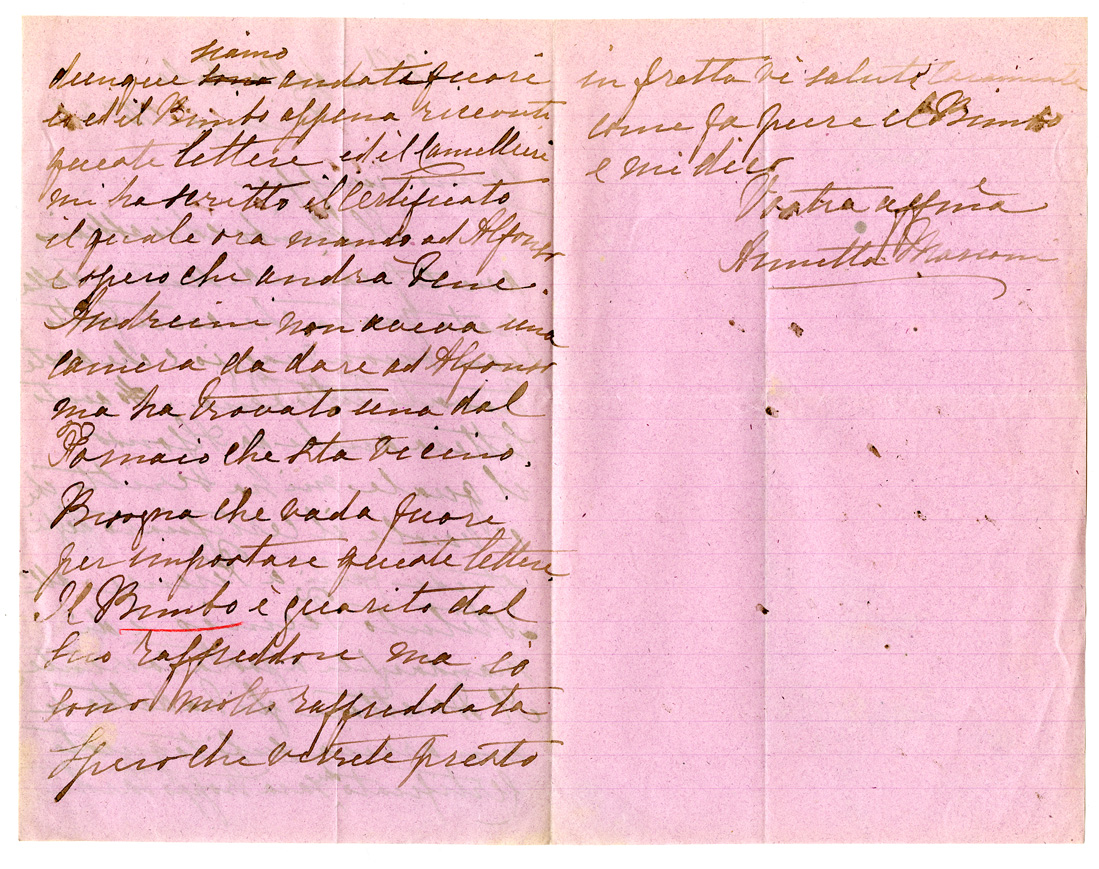 siamo
dunque sono andati fuori
io ed il Bimbo appena ricevuti
queste lettere ed il Camellieri
mi ha scritto il certificato
il quale ora mando ad Alfonso
e spero che andrà bene.
Andreini non aveva una
camera da dare ad Alfonso
ma ha trovato una dal
Fornaio che sta vicino.
Bisogna che vada fuori
per impostare queste lettere.
Il Bimbo è guarito dal
suo raffreddore ma io
sono molto raffreddata
Spero che verrete presto
in fretta vi saluto caramente
come fa pure il Bimbo
e mi dico
Vostra affma
Annetta Marconi